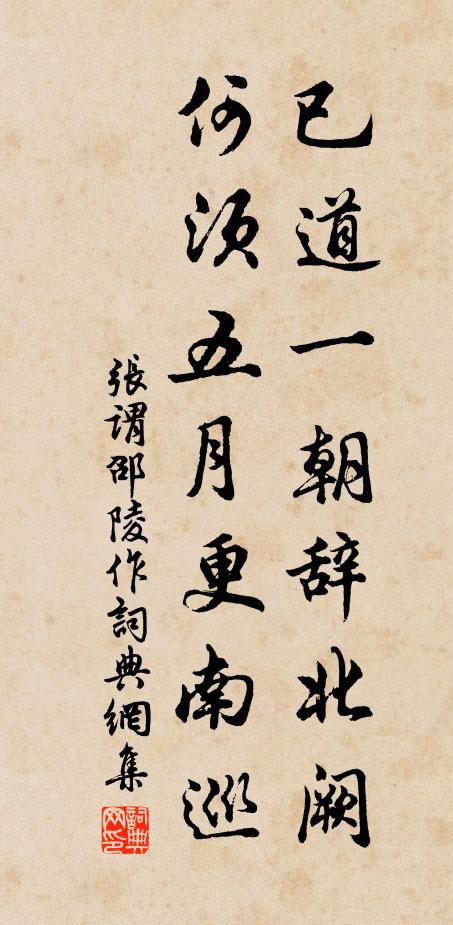 已道一朝辞北阙
何须五月更南巡
張谓邵陵作詞典網集
詞典网印